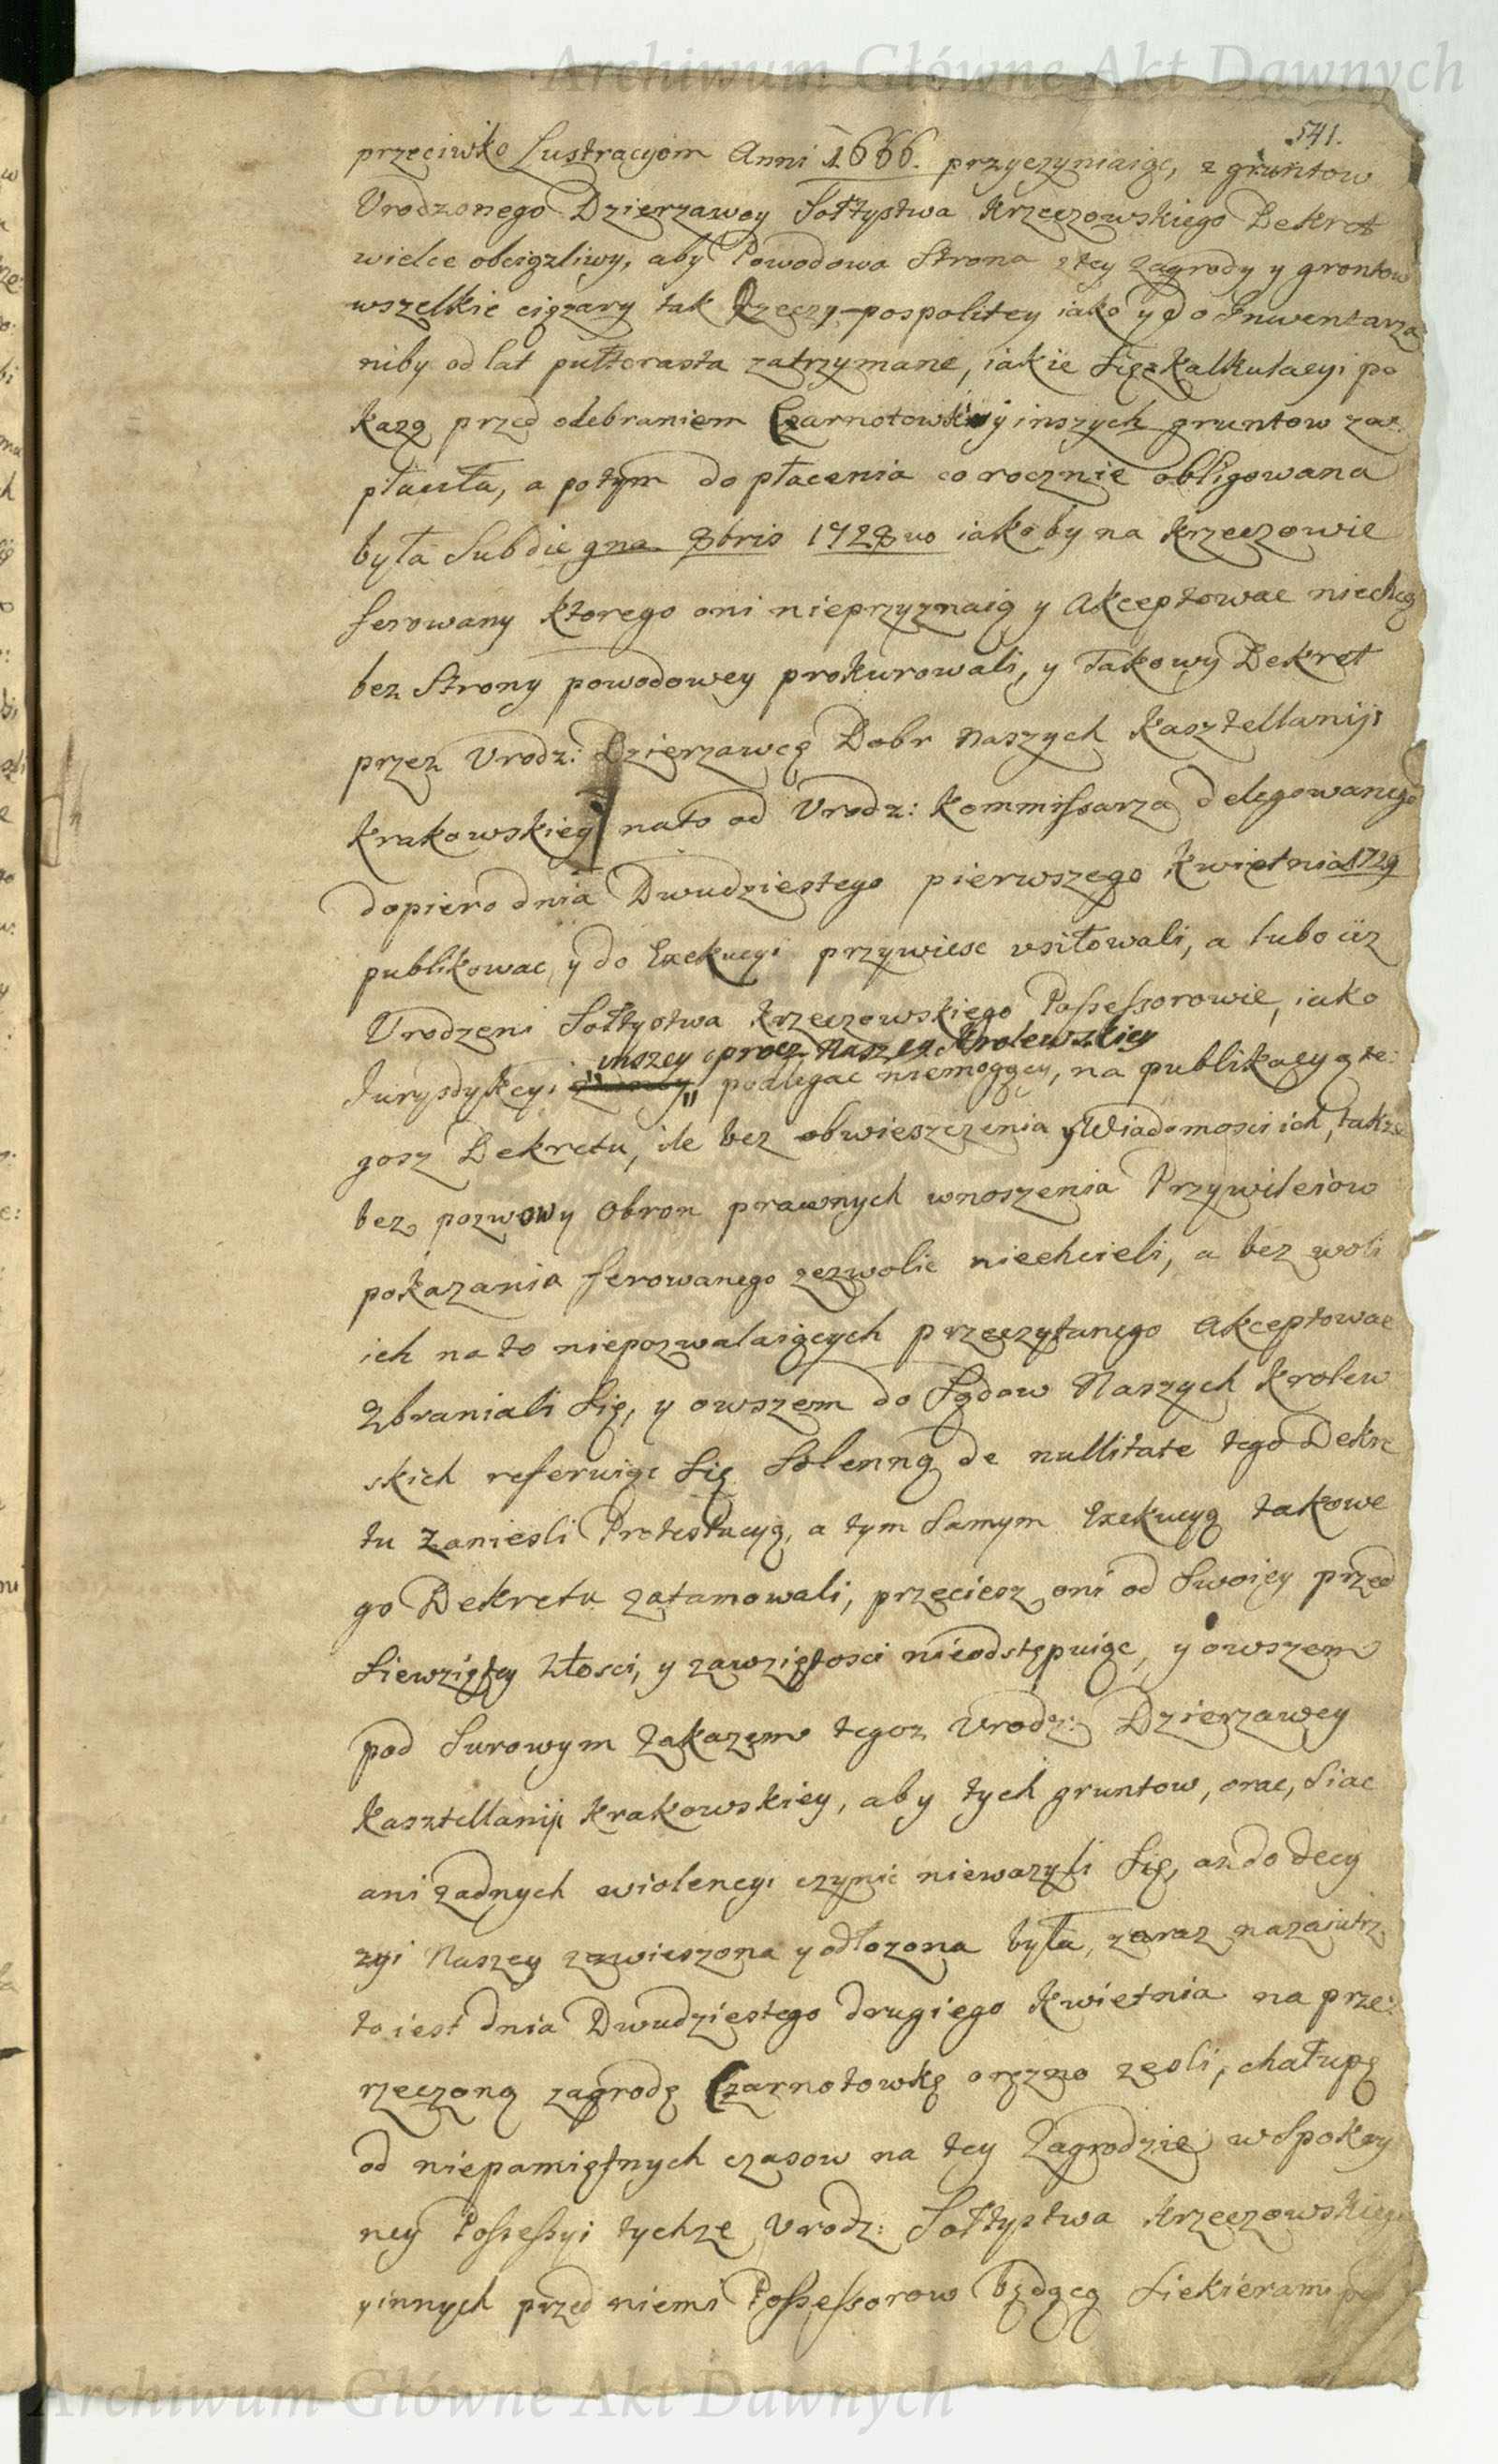 Archiwum Główne Akt Dawnych
541.
przeciwko Lustracyom Anni 1666. przyczyniaiąc, z gruntow
Urodzonego Dzierzawcy Sołtystwa Krzeczowskiego Dekret
wielce obciązliwy, aby Powodowa Strona z tey Zagrody y grontow
wszelkie cięzary tak Rzeczy-pospolitey iako y do Inwentarza
niby od lat pułtorasta zatrzymane, iakie się z Kalkulacyi po
kazą przed odebraniem Czarnotowki y inszych gruntow za=
płaciła, a potym do płacenia corocznie obligowana
była sub die 9na 8bris 1728vo iakoby na Krzeczowie
ferowany ktorego oni nieprzyznaią y Akceptowac niechcą
bez Strony powodowey prokurowali, y Takowy Dekret
przez Urodz: Dzierzawcę Dobr Naszych Kasztellanij
Krakowskiey na to od Urodz: Kommissarza delegowanego
dopiero dnia Dwudziestego pierwszego Kwietnia 1729
publikowac, y do Exekucyi przywiesc usiłowali, a lubo iiz
Urodzeni Sołtystwa Krzeczowskiego Possessorowie, iako
inszey oprocz Naszey Krolewskiey
Jurysdykcyi podlegac niemogący, na publikacyą te:
gosz Dekretu, ile bez obwieszczenia y Wiadomosci ich, takze
bez pozwow y Obron prawnych wnoszenia Przywileiow
pokazania ferowanego zezwolic niechcieli, a bez woli
ich na to niepozwalaiących przeczytanego Akceptowac
Zbraniali się, y owszem do Sądow Naszych Krolew
skich referuiąc się Solenną de nullitate tego Dekre
tu Zaniesli Protestacyą, a tym samym Exekucyą takowe
go Dekretu zatamowali, przeciesz oni od swoiey przed
siewziętey złosci, y zawziętosci nieodstępuiąc, y owszem
pod Surowym Zakazem tegoz Urodz: Dzierzawcy
Kasztellanij Krakowskiey, aby tych gruntow, orac, siac
ani zadnych wiolencyi czynic niewazyli się, az do decy
zyi Naszey zawieszona y odłozona była, zaraz nazaiutrz
to iest dnia Dwudziestego drugiego Kwietnia na prze:
rzeczoną zagrodę Czarnotowkę oręzno zeszli, chałupę
od niepamiętnych czasow na tey Zagrodzie w Spokoy
ney Possessyi tychze Urodz: Sołtystwa Krzeczowskiego
y innych przed niemi Possessorow będącą Siekierami
Archiwum Główne Akt Dawnych